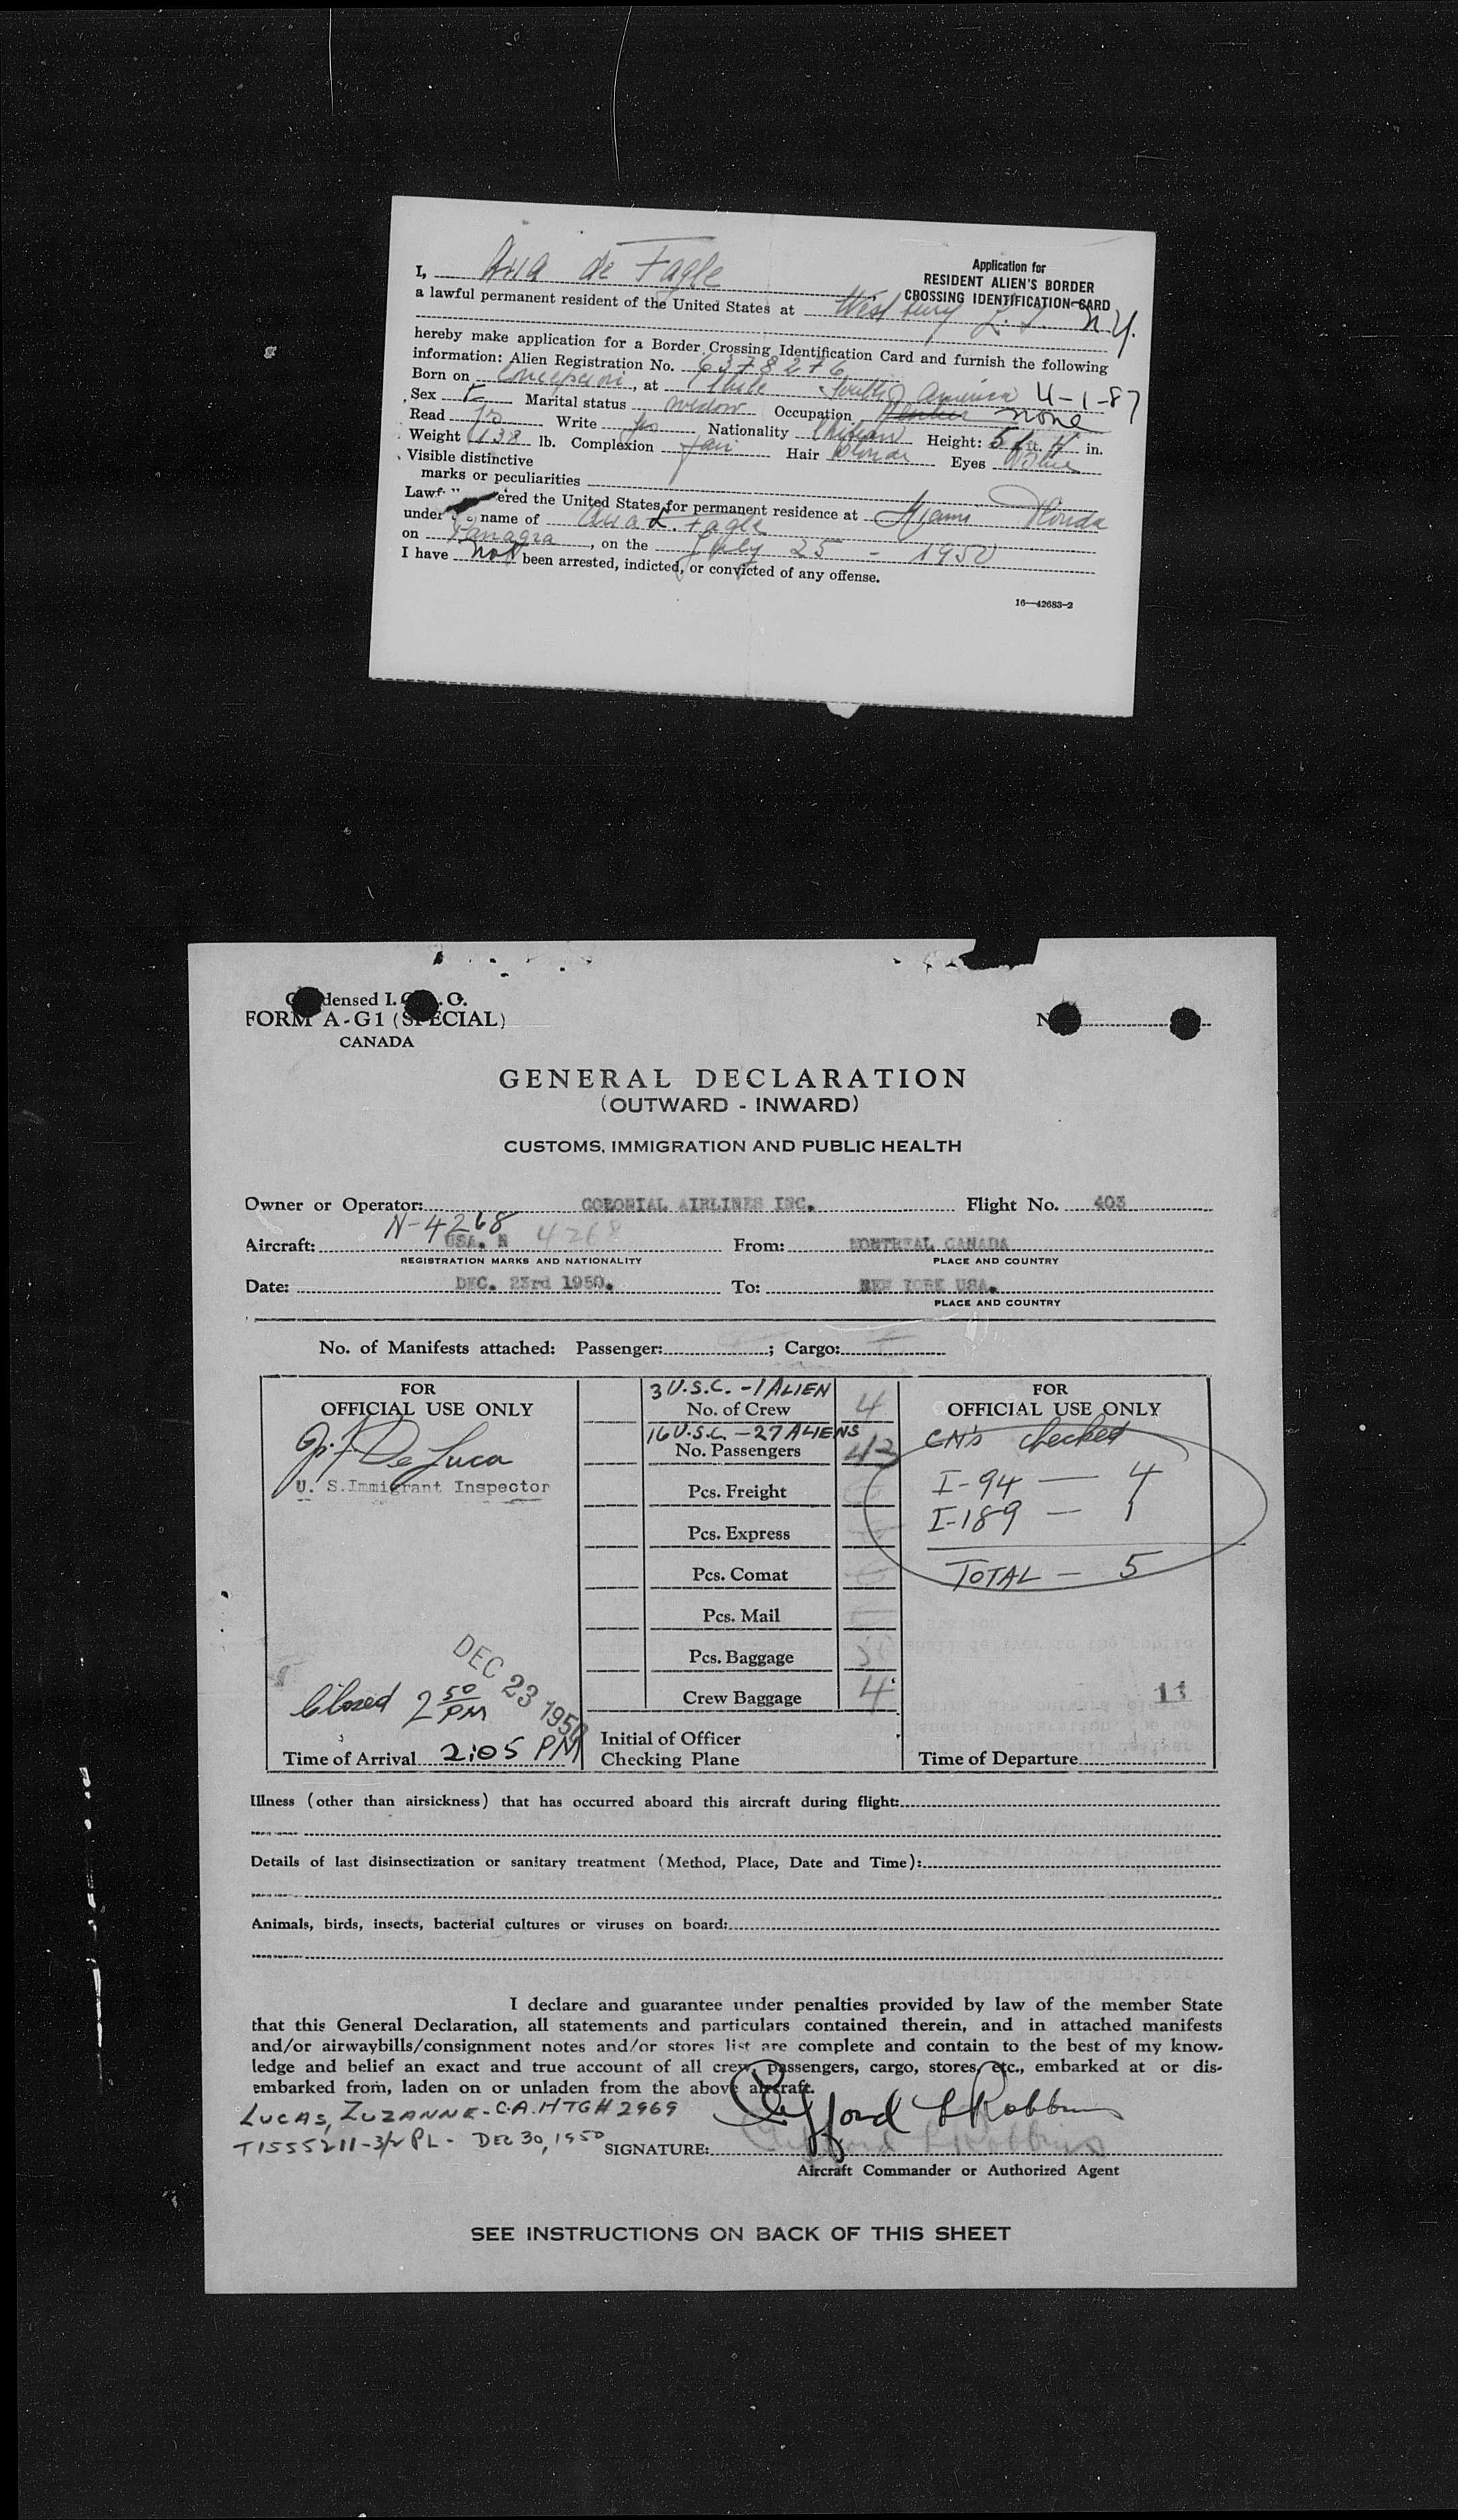 Application for
RESIDENT ALIEN'S BORDER
CROSSING IDENTIFICATION CARD
I, Ana de Fagle
a lawful permanent resident of the United States at Westbury L. I. N.Y.
hereby make application for a Border Crossing Identification Card and furnish the following
information: Alien Registration No. 6378276
Born on Concepcion, at Chile South America 4-1-87
Sex F Marital status widow Occupation none
Read yes Write yes Nationality Chilean Height: 5 ft. 4 in.
Weight 138 lb. Complexion fair Hair blonde Eyes Blue
Visible distinctive
marks or peculiarities
Lawf ered the United States for permanent residence at Miami Florida
under name of Ana L. Fagle
on Panagra, on the July 25 - 1950
I have not been arrested, indicted, or convicted of any offense.
16—42683-2
C densed I. C. . O.
FORM A-G1 (SPECIAL)
CANADA
N
GENERAL DECLARATION
(OUTWARD - INWARD)
CUSTOMS, IMMIGRATION AND PUBLIC HEALTH
Owner or Operator: COLONIAL AIRLINES INC. Flight No. 403
N-4268
Aircraft: USA. N 4268 From: MONTREAL CANADA
REGISTRATION MARKS AND NATIONALITY PLACE AND COUNTRY
Date: DEC. 23rd 1950. To: NEW YORK USA.
PLACE AND COUNTRY
No. of Manifests attached: Passenger: ; Cargo:
FOR
OFFICIAL USE ONLY
G. J. De Luca
U. S. Immigrant Inspector
DEC 23 1950
Closed 2 50 PM
Time of Arrival 2:05 PM
3 U.S.C. - 1 ALIEN
No. of Crew 4
16 U.S.C. - 27 ALIENS
No. Passengers 43
Pcs. Freight
Pcs. Express
Pcs. Comat
Pcs. Mail
Pcs. Baggage
Crew Baggage 4
Initial of Officer
Checking Plane
FOR
OFFICIAL USE ONLY
CN's checked
I-94 — 4
I-189 — 1
TOTAL — 5
Time of Departure
Illness (other than airsickness) that has occurred aboard this aircraft during flight:
Details of last disinsectization or sanitary treatment (Method, Place, Date and Time):
Animals, birds, insects, bacterial cultures or viruses on board:
I declare and guarantee under penalties provided by law of the member State
that this General Declaration, all statements and particulars contained therein, and in attached manifests
and/or airwaybills/consignment notes and/or stores list are complete and contain to the best of my know-
ledge and belief an exact and true account of all crew, passengers, cargo, stores, etc., embarked at or dis-
embarked from, laden on or unladen from the above aircraft.
LUCAS, ZUZANNE - C.A. HTGH 2969
T1555211-3/2 PL - DEC 30, 1950
SIGNATURE: Clifford L Robbins
Aircraft Commander or Authorized Agent
SEE INSTRUCTIONS ON BACK OF THIS SHEET